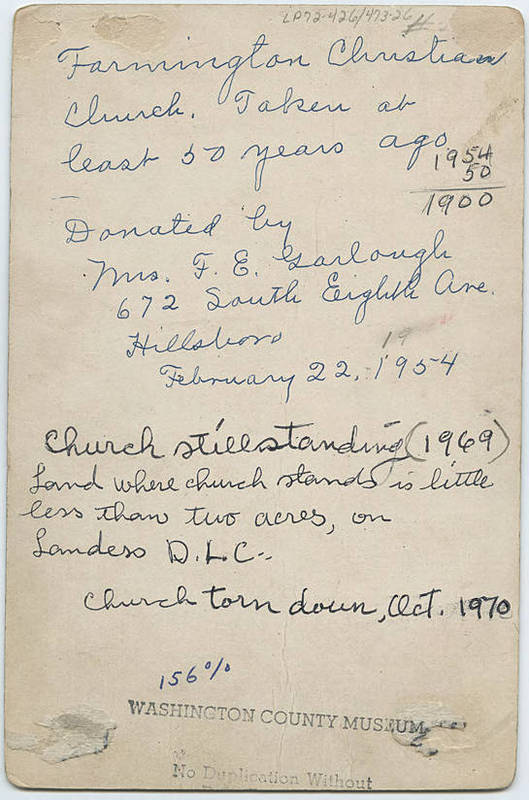 LP72-426/473-26
Farmington Christian
Church. Taken at
least 50 years ago
1954
50
1900
Donated by
Mrs. F. E. Garlough
672 South Eighth Ave.
Hillsboro
19
February 22, 1954
Church still standing (1969)
Land where church stands is little
less than two acres, on
Landess D.L.C--
Church torn down, Oct. 1970
156%
WASHINGTON COUNTY MUSEUM
No Duplication Without